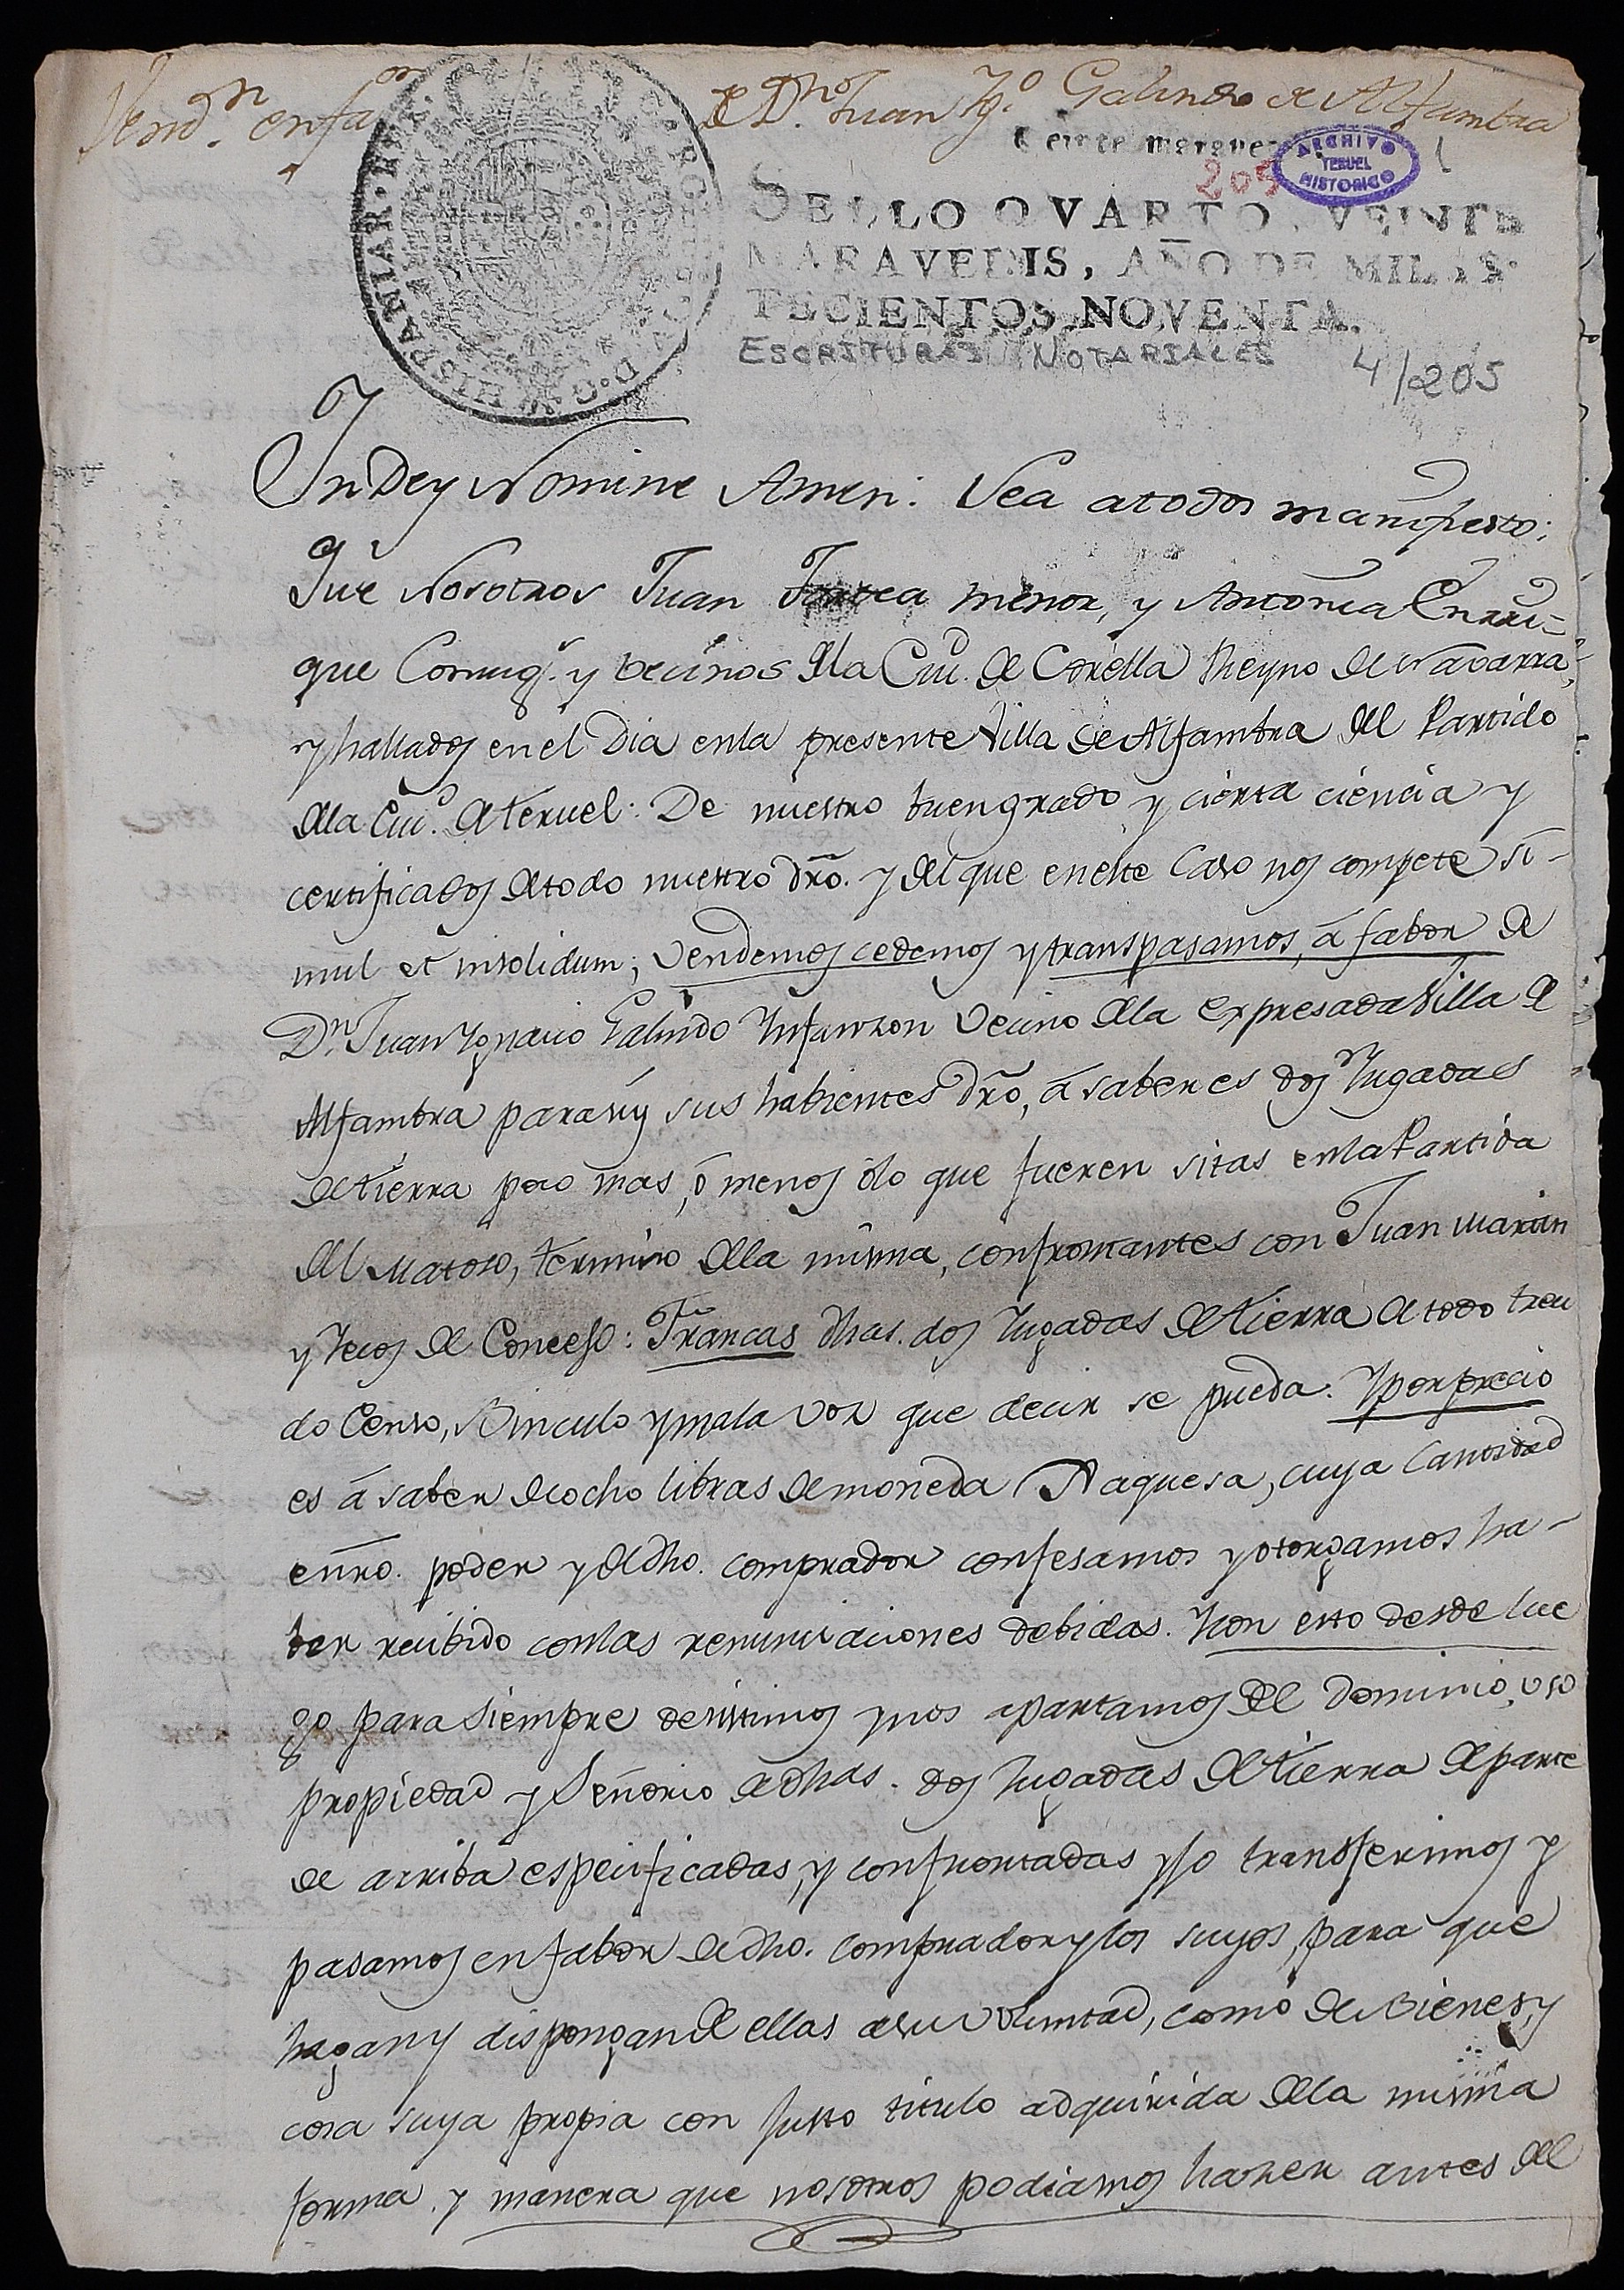 Vend.ⁿ en fa.ʳ de D.ⁿ Juan Yg.º Galindo de Alfambra
Veinte maravedis
209
ARCHIVO
TERUEL
HISTORICO
1
SELLO QVARTO, VEINTE
MARAVEDIS, AÑO DE MIL SE-
TECIENTOS NOVENTA.
HISPANIAR
D. G.
ESCRITURAS NOTARIALES 4/205
In Dey Nomine Amen: Sea atodos manifiesto:
Que Nosotros Juan menor, y Antonia Enrri=
que Conyug.ˢ y vecinos dela Ciu.ᵈ de Corella Reyno de Navarra,
y hallados en el Dia enla presente Villa de Alfambra del Partido
dela Ciu.ᵈ de Teruel: De nuestro buengrado y cierta ciencia y
certificados de todo nuestro dr̃o. y del que eneste Caso nos compete si-
mul et insolidum; vendemos cedemos y transpasamos, á fabor de
D.ⁿ Juan Ygnacio Galindo Ynfanzon Vecino dela expresada Villa de
Alfambra para si y sus habientes dr̃o, á saber es dos Yugadas
de tierra poco mas, ó menos ó lo que fueren sitas enla Partida
del Matoso, termino dela misma, confrontantes con Juan Martin
y Yecos de Concejo: Francas dhas. dos Yugadas de tierra de todo treu
do Censo, Binculo y mala voz que decir se pueda. Y por precio
es á saber de ocho libras de moneda Jaquesa, cuya Cantidad
en ñro. poder y de dho. comprador confesamos y otorgamos ha-
ber recibido conlas renunciaciones debidas. Y con esto desde lue
go para siempre desistimos y nos apartamos del Dominio, uso
propiedad y Señorio de dhas. dos Yugadas de tierra de parte
de arriba especificadas, y confrontadas y lo transferimos y
pasamos en fabor de dho. comprador y los suyos, para que
hagan y dispongan de ellas a su voluntad, como de Bienes, y
cosa suya propia con justo titulo adquirida dela misma
forma y manera que nosotros podiamos hazer antes del